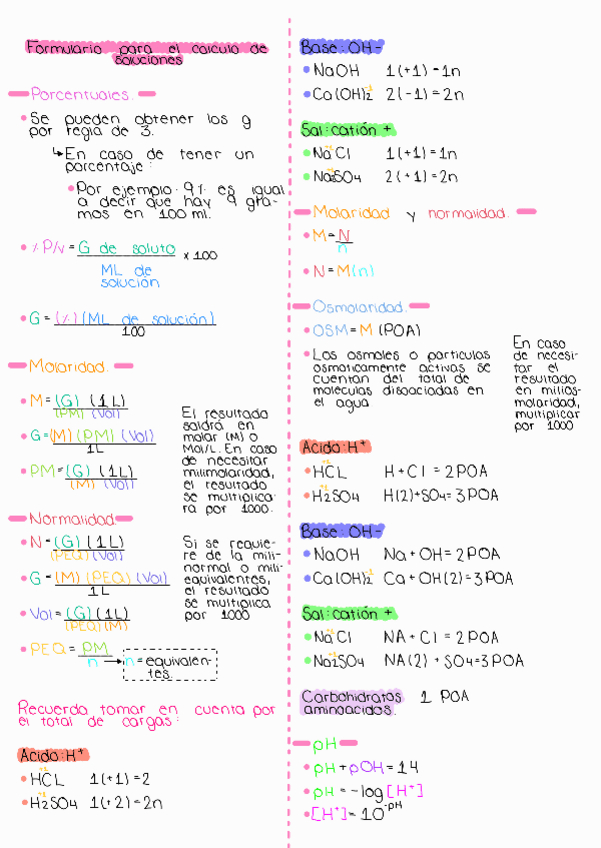 Formulario para el calculo de
soluciones
Porcentuales.
Se pueden obtener los g
por regla de 3.
↳En caso de tener un
porcentaje:
Por ejemplo: 9% es igual
a decir que hay 9 gra-
mos en 100 ml.
% P/V = G de soluto x 100
ML de
solución
G = (%) (ML de solución)
100
Molaridad.
M = (G) (1L)
(PM) (Vol)
G = (M) (PM) (Vol)
1L
PM = (G) (1L)
(M) (Vol)
El resultado
saldrá en
molar (M) o
Mol/L. En caso
de necesitar
milimolaridad,
el resultado
se multiplica-
ra por 1000.
Normalidad.
N = (G) (1L)
(PEQ) (Vol)
G = (M) (PEQ) (Vol)
1L
Vol = (G) (1L)
(PEQ) (M)
PEQ = PM
n → n = equivalen-
tes.
Si se requie-
re de la mili-
normal o mili-
equivalentes,
el resultado
se multiplica
por 1000
Recuerda tomar en cuenta por
el total de cargas:
Acido: H+
+1
HCL 1(+1) = 2
+1
H2SO4 1(+2) = 2n
Base: OH-
NaOH 1(+1) = 1n
Ca(OH)2 -1 2(-1) = 2n
Sal: catión +
+1
NaCl 1(+1) = 1n
+1
Na2SO4 2(+1) = 2n
Molaridad y normalidad.
M = N
n
N = M(n)
Osmolaridad.
OSM = M (POA)
Los osmoles o particulas
osmoticamente activas se
cuentan del total de
moleculas disociadas en
el agua
En caso
de necesi-
tar el
resultado
en milios-
molaridad,
multiplicar
por 1000
Acido: H+
+1
HCL H + Cl = 2POA
+1
H2SO4 H(2) + SO4 = 3POA
Base: OH-
NaOH Na + OH = 2POA
Ca(OH)2 -1 Ca + OH(2) = 3POA
Sal: catión +
+1
NaCl NA + Cl = 2POA
+1
Na2SO4 NA(2) + SO4 = 3POA
Carbohidratos 1 POA
aminoacidos.
pH
pH + pOH = 14
pH = -log [H+]
[H+] = 10-pH